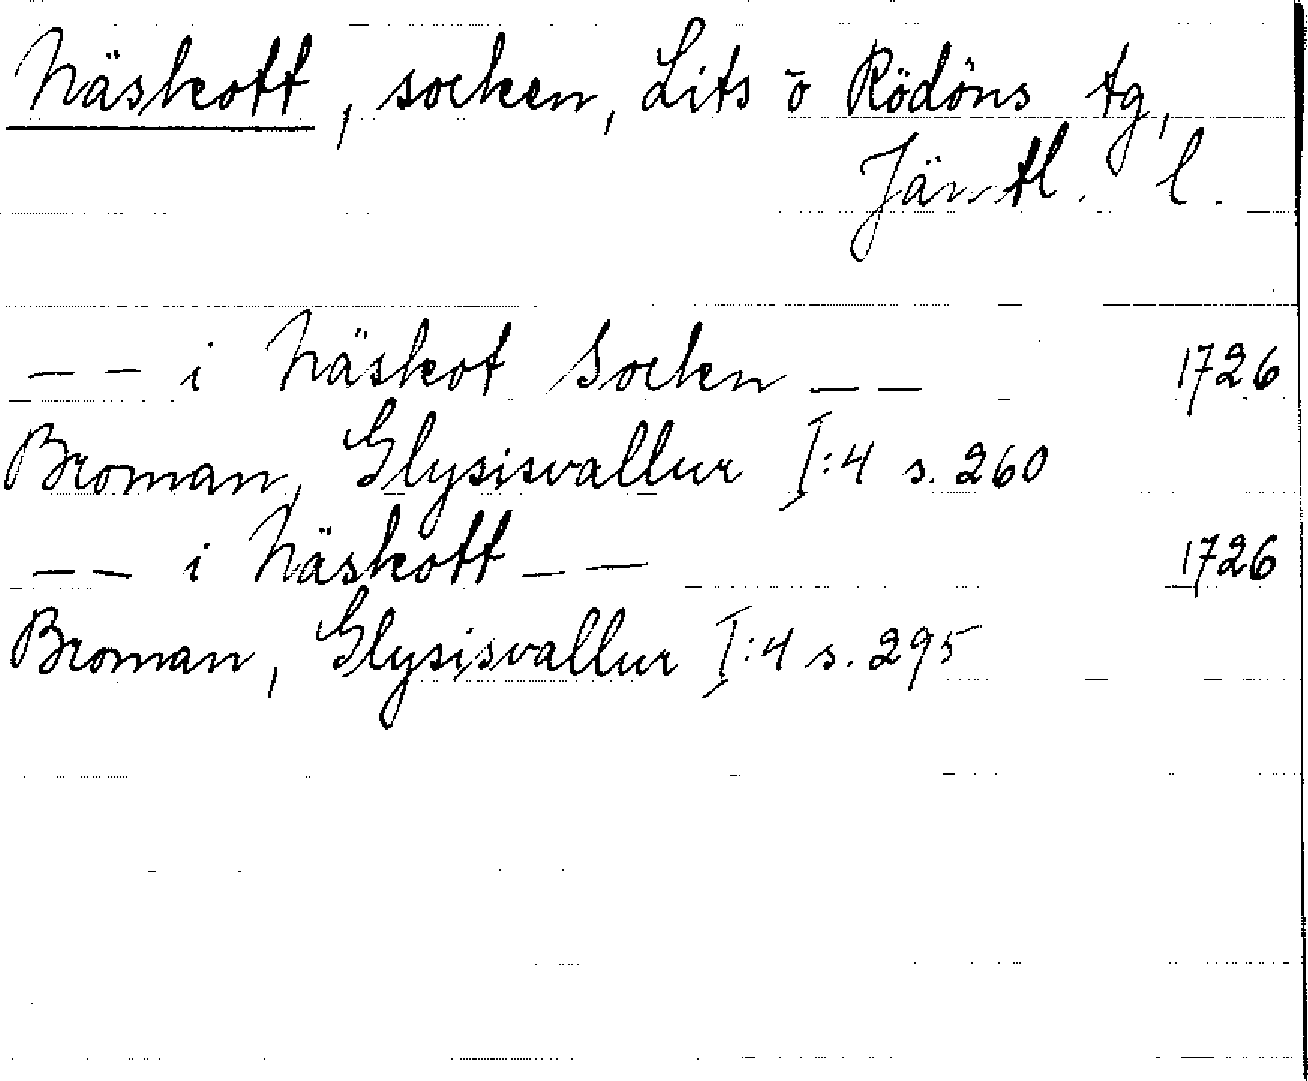 Näskott, socken, Lits o Rödöns tg,
Jämtl. l.
— — i Näskot Socken — — 1726
Broman, Glysisvallur I:4 s. 260
— — i Näskott — — 1726
Broman, Glysisvallur I:4 s. 295